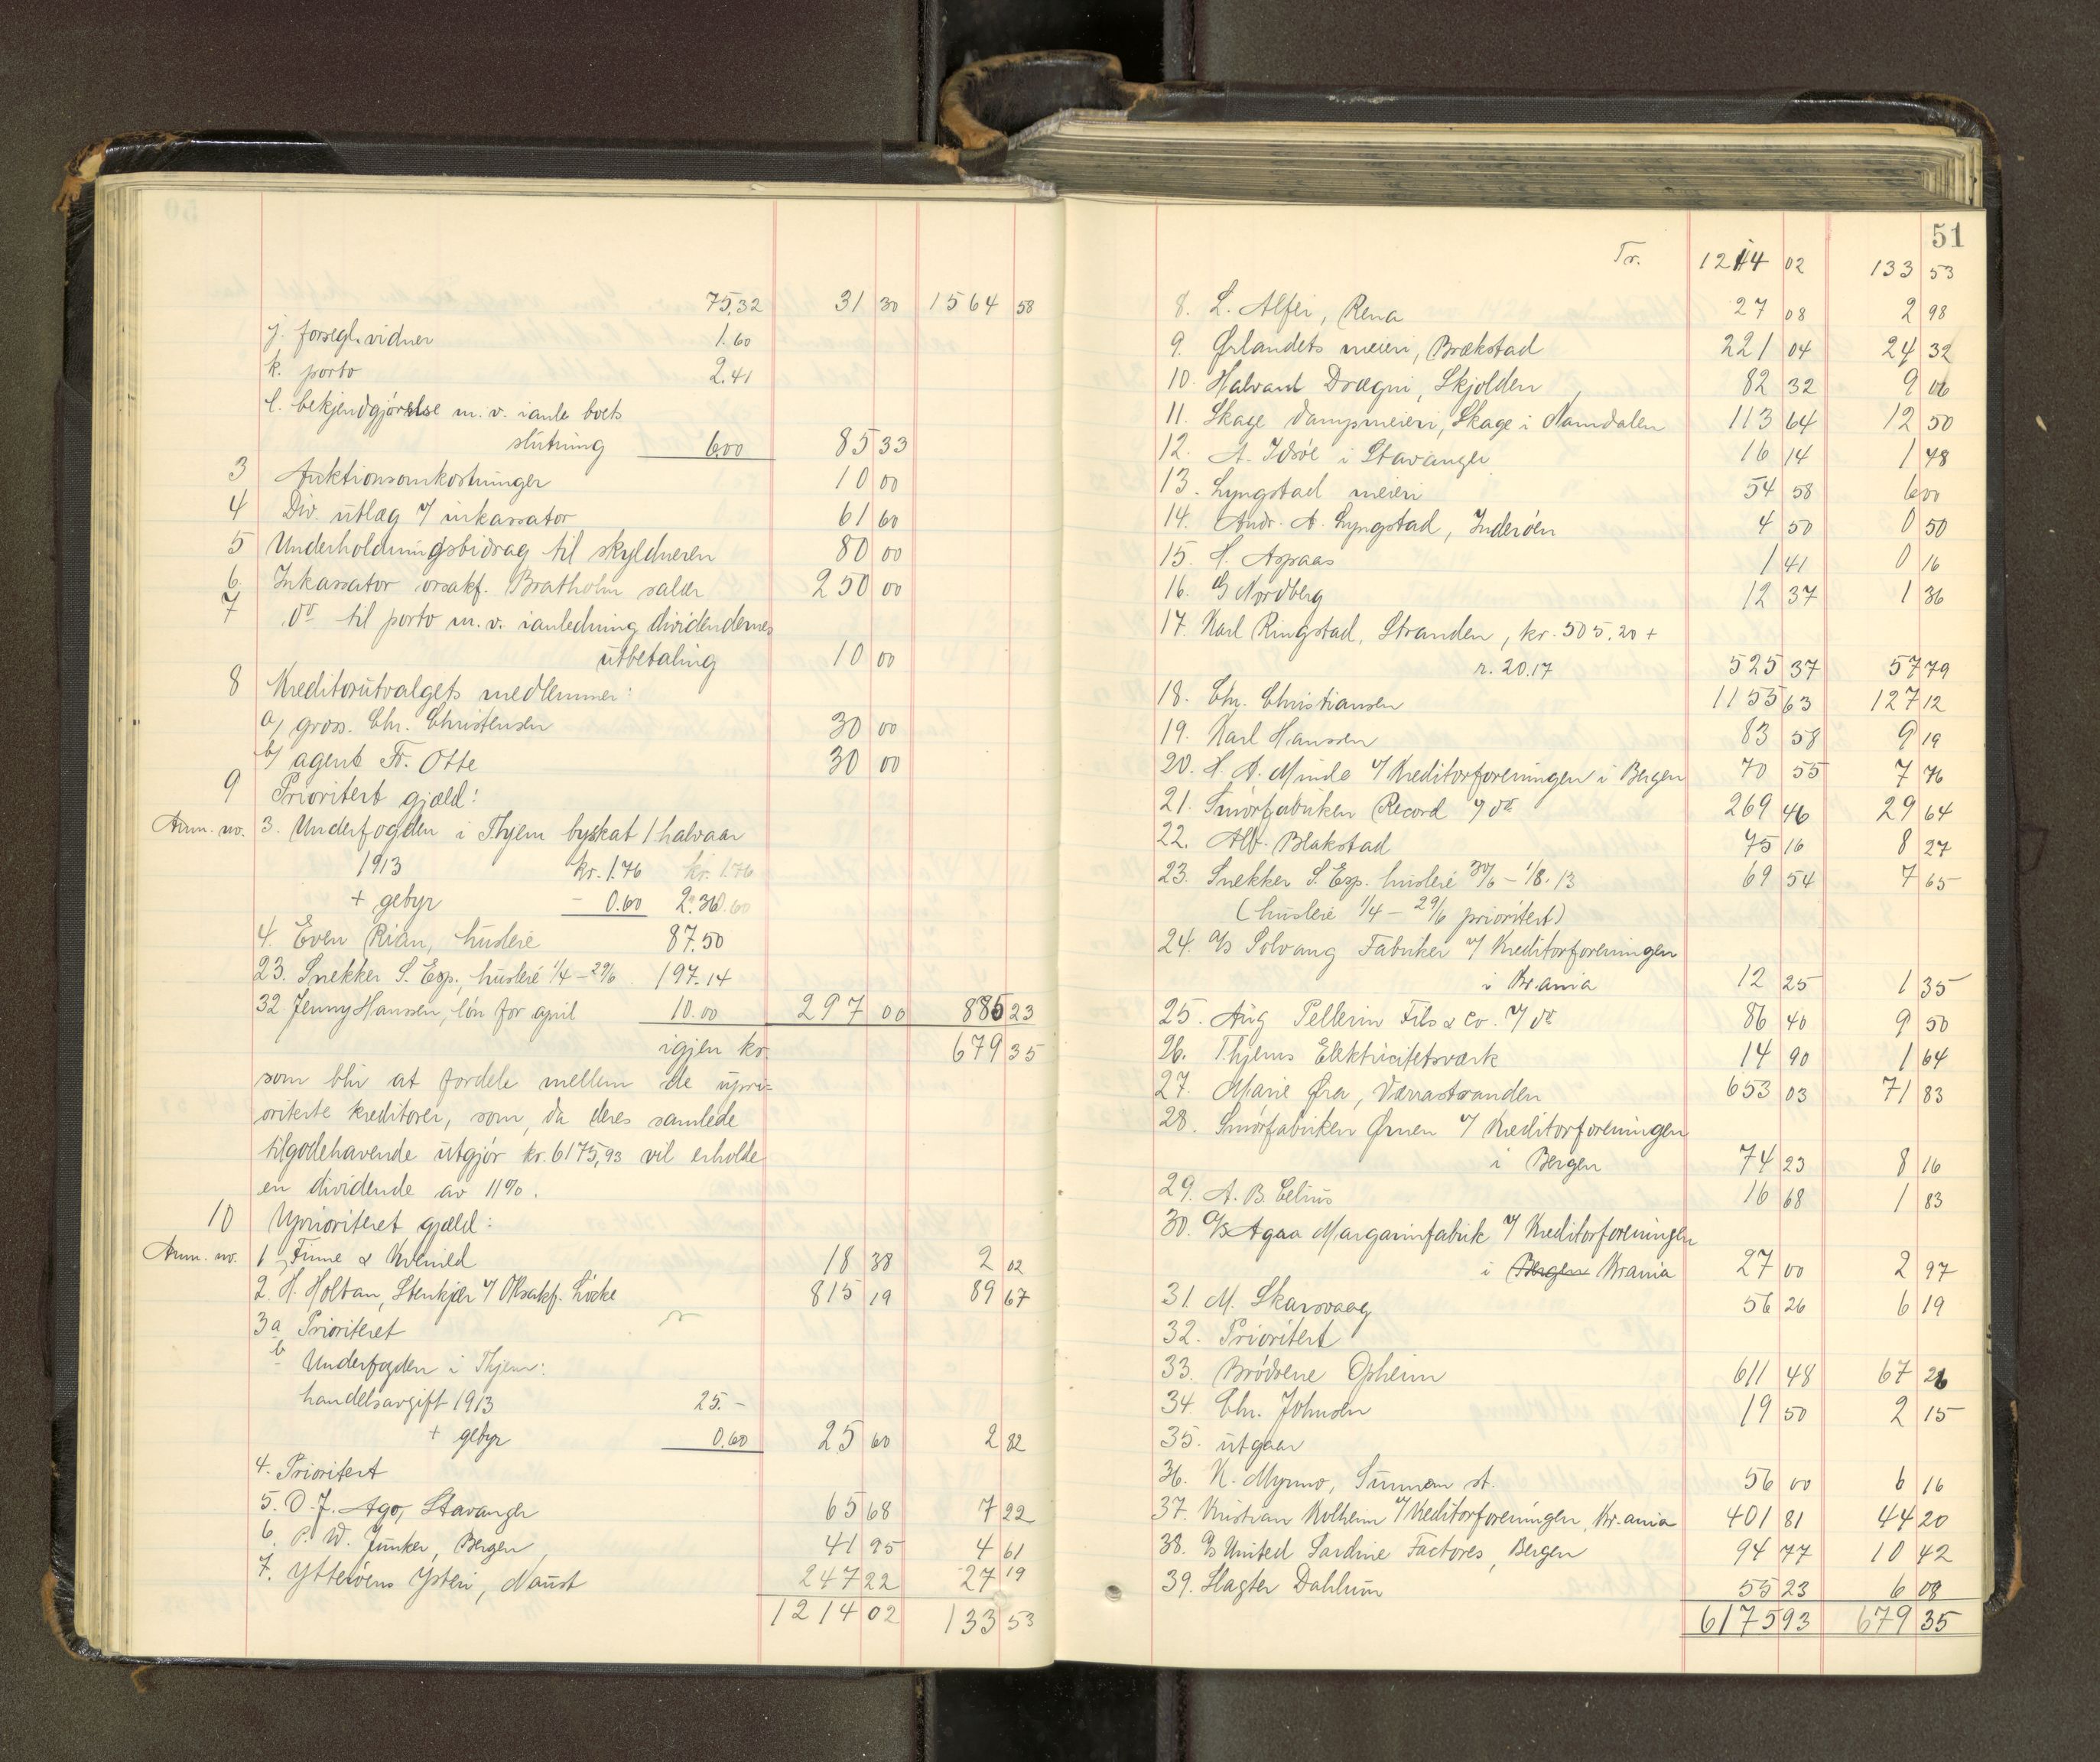 75,32 31 30 1564 58
j. forsegl. vidner 1.60
k. porto 2.41
l. bekjendtgjørelse m. v. i anle boets
slutning 6.00 85 33
3 Auktionsomkostninger 10 00
4 Div. utlæg v/ inkassator 61 60
5 Underholdningsbidrag til skyldneren 80 00
6. Inkassator orsakf. Bratholm salær 250 00
7 do til porto m. v. i anledning dividendernes
utbetaling 10 00
8 Kreditorutvalgets medlemmer:
a) gross. Chr. Christensen 30 00
b) agent Fr. Otte 30 00
9 Prioritert gjæld:
Anm. no. 3. Underfogden i Thjem byskat 1 halvaar
1913 kr. 1.76 kr. 1.76
+ gebyr - 0.60 2.36
4. Even Rian, husleie 87.50
23. Snekker S. Esp., husleie 1/4 – 29/6 197.14
32 Jenny Hansen, løn for april 10.00 297 00 885 23
igjen kr. 679 35
som blir at fordele mellem de upri=
oriterte kreditorer, som, da deres samlede
tilgodehavende utgjør kr. 6175,93 vil erholde
en dividende av 11%.
10 Uprioritert gjæld:
Anm. no. 1, Finne & Kvenild 18 38 2 02
2. H. Holtan, Stenkjær v/ Orsakf. Løcke 815 19 89 67
3a Prioritert
b Underfogden i Thjem:
handelsavgift 1913 25.-
+ gebyr 0.60 25 60 2 82
4. Prioritert
5. O. J. Ago, Stavanger 65 68 7 22
6. P. W. Junker, Bergen 41 95 4 61
7. Ytterøens Ysteri, Naust 247 22 27 19
1214 02 133 53
51
Tr. 1214 02 133 53
8. L. Alfei, Rena 27 08 2 98
9. Ørlandets meieri, Brækstad 221 04 24 32
10. Halvard Drægni, Skjolden 82 32 9 06
11. Skage Dampmeieri, Skage i Namdalen 113 64 12 50
12. A. Idsøe i Stavanger 16 14 1 78
13. Lyngstad meieri 54 58 6 00
14. Andr. A. Lyngstad, Inderøen 4 50 0 50
15. H. Aspaas 1 41 0 16
16. G Nordberg 12 37 1 36
17. Karl Ringstad, Stranden, kr. 505.20 +
r. 20.17 525 37 57 79
18. Chr. Christiansen 1155 63 127 12
19. Karl Hansen 83 58 9 19
20. H. A. Minde v/ Kreditorforeningen i Bergen 70 55 7 76
21. Smørfabriken Record v/ do 269 46 29 64
22. Alb. Blakstad 75 16 8 27
23. Snekker S. Esp. husleie 30/6 – 1/8. 13 69 54 7 65
(husleie 1/4 – 29/6 prioritert)
24. A/s Solvang Fabriker v/ Kreditorforeningen
i Kr.ania 12 25 1 35
25. Aug Pellerin Fils & Co. v/ do 86 40 9 50
26. Thjems Elektricitetsværk 14 90 1 64
27. Marie Øra, Værrastranden 653 03 71 83
28. Smørfabriken Ørnen v/ Kreditorforeningen
i Bergen 74 23 8 16
29. A. B. Celius 16 68 1 83
30. A/s Agaa Margarinfabrik v/ Kreditorforeningen
i Bergen Krania 27 00 2 97
31. M. Skarsvaag 56 26 6 19
32. Prioritert
33. Brødrene Opheim 611 48 67 26
34. Chr. Johnsen 19 50 2 15
35. utgaar
36. K. Myrmo, Sunnan st. 56 00 6 16
37. Kristian Kolheim v/ Kreditorforeningen, Kr.ania 401 81 44 20
38. A/s United Sardine Factores, Bergen 94 77 10 42
39. Slagter Dahlum 55 23 6 08
6175 93 679 35